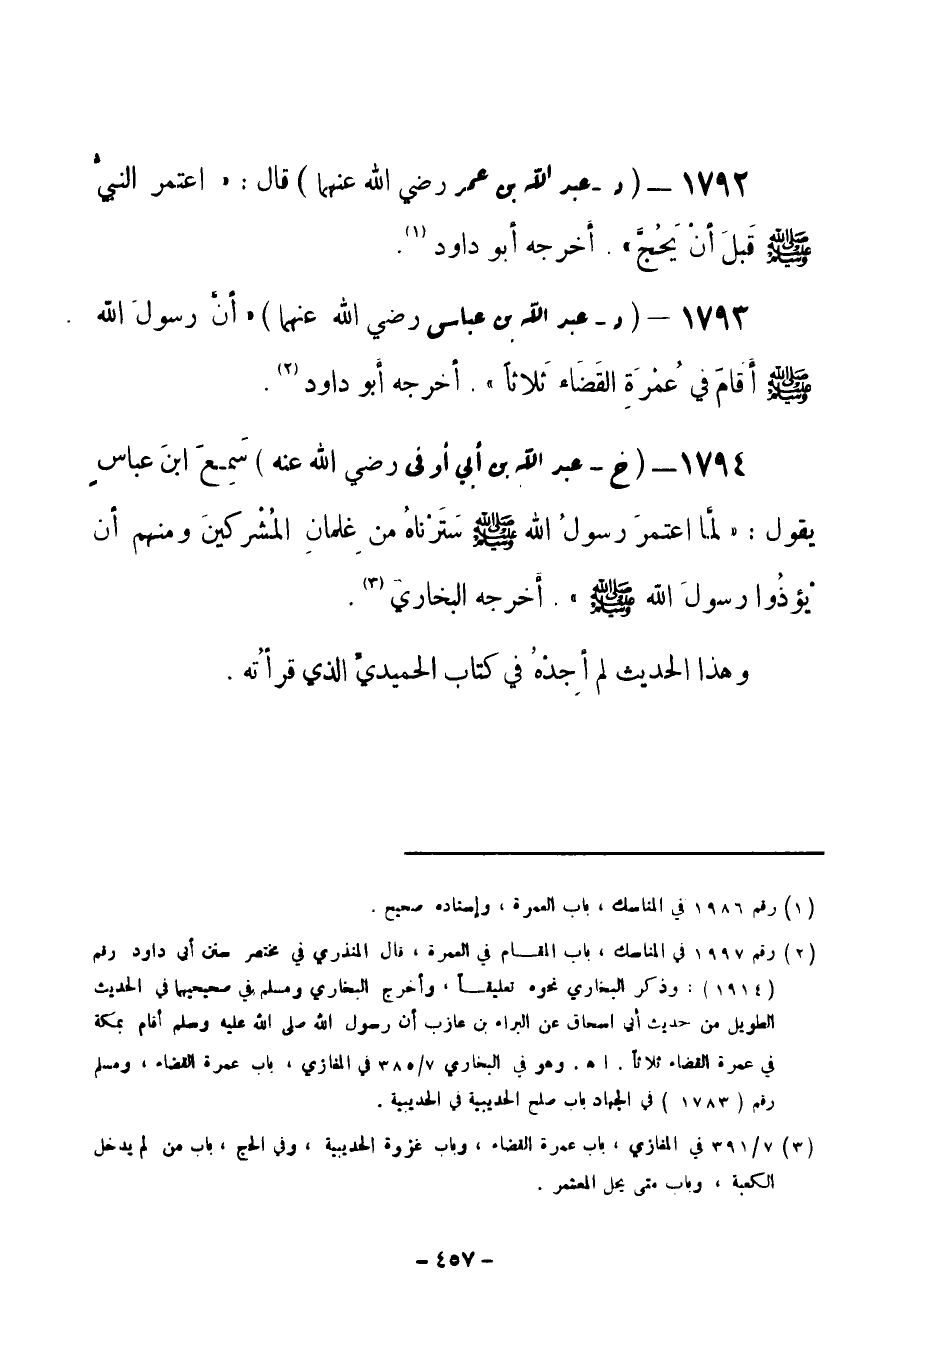 ١٧٩٢ – ( د - عبد الله بن عمر رضي الله عنهما ) قال : « اعتمر النبيُّ
ﷺ قَبلَ أنْ يَحُجَّ » . أخرجه أبو داود (١).
١٧٩٣ – ( د - عبد الله بن عباس رضي الله عنهما ) « أنَّ رسولَ الله
ﷺ أقامَ في عُمْرَةِ القَضَاء ثَلاثاً » . أخرجه أبو داود (٢) .
١٧٩٤ – ( خ - عبد الله بن أبي أوفى رضي الله عنه ) سَمِعَ ابنَ عباسٍ
يقول : « لمَّا اعتمرَ رسولُ الله ﷺ سَتَرْناهُ من غِلمانِ المُشْركينَ ومنهم أن
يُؤْذُوا رسولَ الله ﷺ » . أخرجه البخاريّ (٣) .
وهذا الحديث لم أجِدْهُ في كتاب الحميديّ الذي قرأتُه .
(١) رقم ١٩٨٦ في المناسك ، باب العمرة ، وإسناده صحيح .
(٢) رقم ١٩٩٧ في المناسك ، باب المقام في العمرة ، قال المنذري في مختصر سنن أبي داود رقم
(١٩١٤) : وذكر البخاري نحوه تعليقاً ، وأخرج البخاري ومسلم في صحيحيهما في الحديث
الطويل من حديث أبي اسحاق عن البراء بن عازب أن رسول الله صلى الله عليه وسلم أقام بمكة
في عمرة القضاء ثلاثاً . ا ه . وهو في البخاري ٣٨٥/٧ في المغازي ، باب عمرة القضاء ، ومسلم
رقم ( ١٧٨٣ ) في الجهاد باب صلح الحديبية في الحديبية .
(٣) ٣٩١/٧ في المغازي ، باب عمرة القضاء ، وباب غزوة الحديبية ، وفي الحج ، باب من لم يدخل
الكعبة ، وباب متى يحل المعتمر .
– ٤٥٧ –